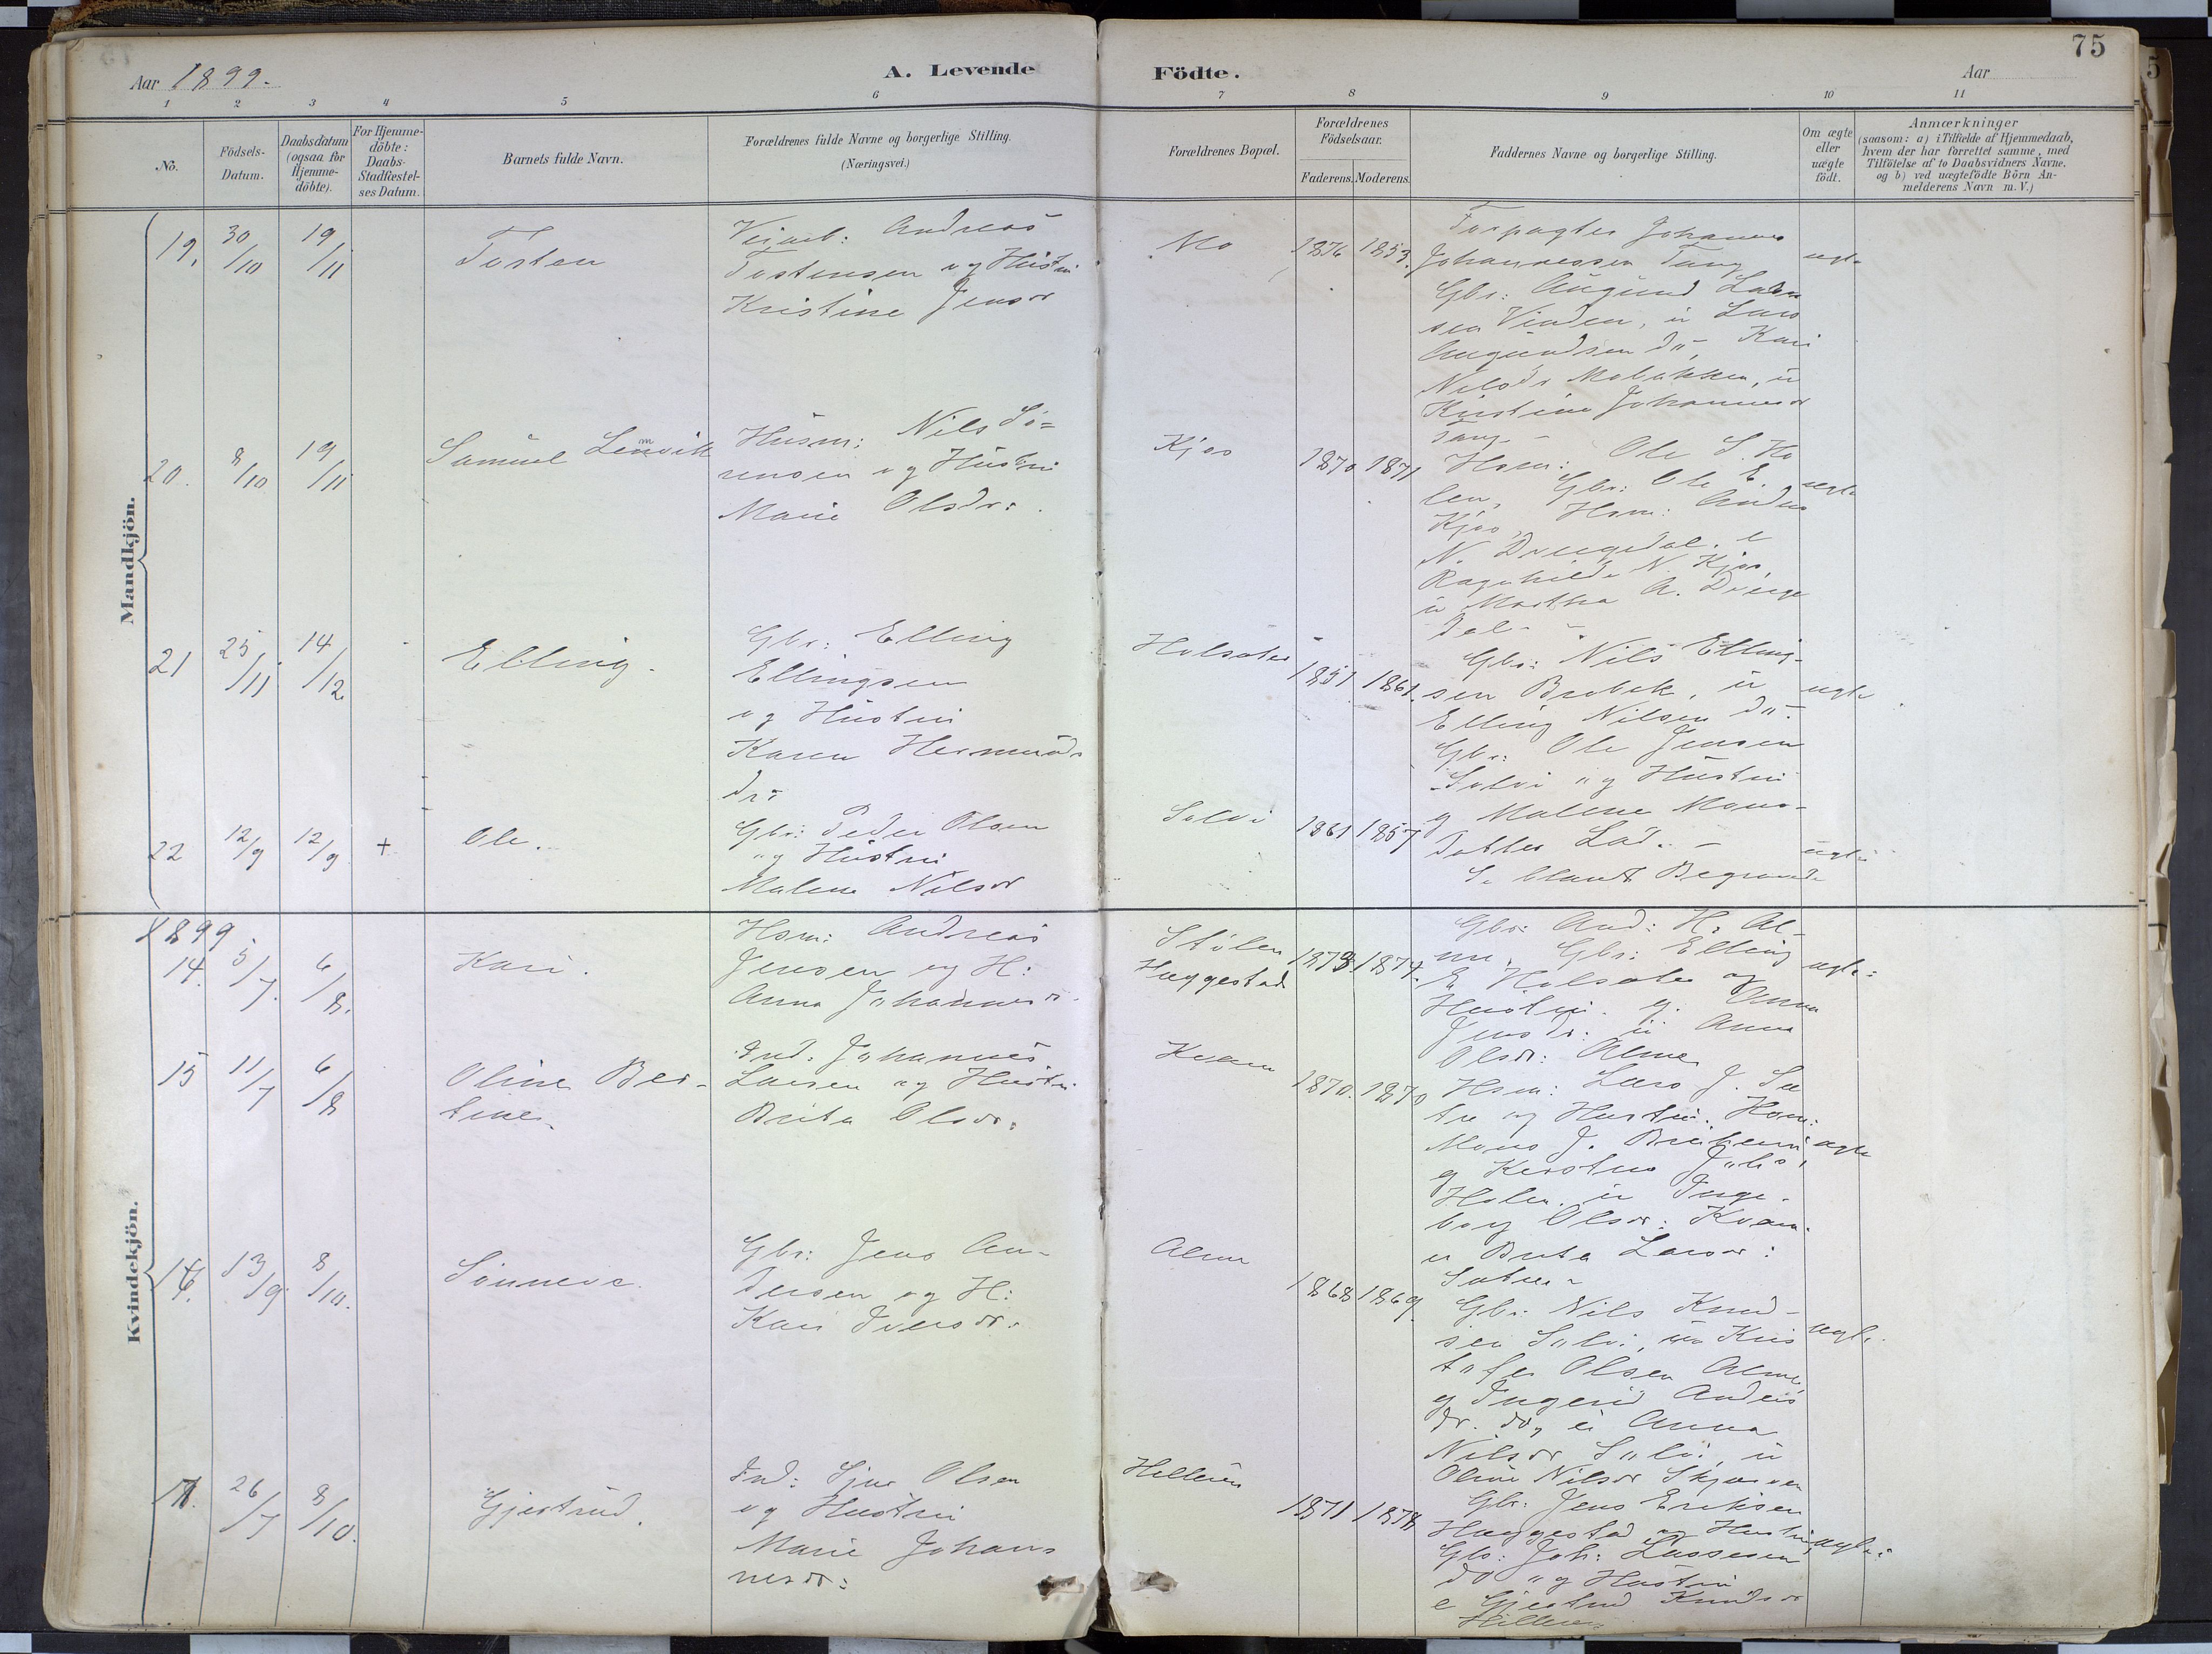 75
Aar 1899.
A. Levende Födte.
Aar
1 2 3 4 5 6 7 8 9 10 11
No.
Födsels-
Datum.
Daabsdatum
(ogsaa for
Hjemme-
döbte).
For Hjemme-
döbte:
Daabs-
Stadfæstel-
ses Datum.
Barnets fulde Navn.
Forældrenes fulde Navne og borgerlige Stilling.
(Næringsvei.)
Forældrenes Bopæl.
Forældrenes
Födselsaar.
Faderens. Moderens.
Faddernes Navne og borgerlige Stilling.
Om ægte
eller
uægte
födt.
Anmærkninger
(saasom: a) i Tilfælde af Hjemmedaab,
hvem der har forrettet samme, med
Tilföielse af to Daabsvidners Navne,
og b) ved uægtefödte Börn An-
melderens Navn m. V.)
Mandkjön.
19. 30/10 19/11
Tosten
Andreas
Tostensen og Hustru
Kristine Jensdr
Mo
1876 1853.
Forpagter Johannes
Johannessen Tang
Gbr: Augund Lar
sen Vinden, u Lars
Augundsen do, Kari
Nilsdr Mobakken, u
Kristine Johannesdr
Tang
ægte
20. 8/10 19/11
Samuel Lemvik
Husm: Nils Sö=
rensen og Hustru
Marie Olsdr.
Kjos
1870 1871
Hsm: Ole S. Ho
len, Gbr: Ole E.
Kjos, Hsm: Anders
N. Dringedal. e
Ragnhilde N. Kjos,
u Martha A. Dringe
dal
ægte
21 25/11 14/12
Elling.
Gbr: Elling
Ellingsen
og Hustru
Karen Hermunds
dr:
Holsæter
1851 1861.
Gbr: Nils Elling-
sen Brobek, u
Elling Nilsen do.
Gbr: Ole Jensen
Solvi og Hustru
g Malene Mons-
datter Lad. -
ægte
22 12/9 12/9 +
Ole.
Gbr: Peder Olsen
og Hustru
Malene Nilsdr
Solvi
1861 1857
S. blant Begravede
ægte
Kvindekjön.
1899
14. 5/7. 6/8.
Kari.
Hsm: Andreas
Jensen og H:
Anna Johannesdr.
Stölen
Haggestad
1873. 1874.
Gbr: And: H. Al-
me, Gbr: Elling
E Holsæter og
Hustru. g. Anna
Jensdr: u Anna
Olsdr: Alme
ægte:
15 11/7 6/8
Oline Ber-
tine.
Ind: Johannes
Larsen og Hustru
Brita Olsdr:
Kvam
1870. 1870
Hsm: Lars J. Sæ
tre og Hustru. Hsm:
Mons J.
g Kersten Johs.
Holen. u Inge-
borg Olsdr: Kvam.
u Brita Larsdr:
Sætre
ægte
16. 13/9 8/10.
Sünneve.
Gbr: Jens An-
dersen og H:
Kari Iversdr:
Alme
1868 1869
Gbr. Nils Knud-
sen Solvi, u Kris
tofer Olsen Alme,
g Ingerid Anders
dr. do, u Anna
Nilsdr Solvi, u
Oline Nilsdr Skjerven
ægte
17. 26/7 8/10.
Gjertrud.
Ind: Sjur Olsen
og Hustru
Marie Johan=
nesdr:
Helleren
1871 1878
Gbr: Jens Eriksen
Haggestad og Hustru,
Gbr: Joh: Lassesen
do og Hustru
e Gjertrud Knudsdr
Helleren
ægte: